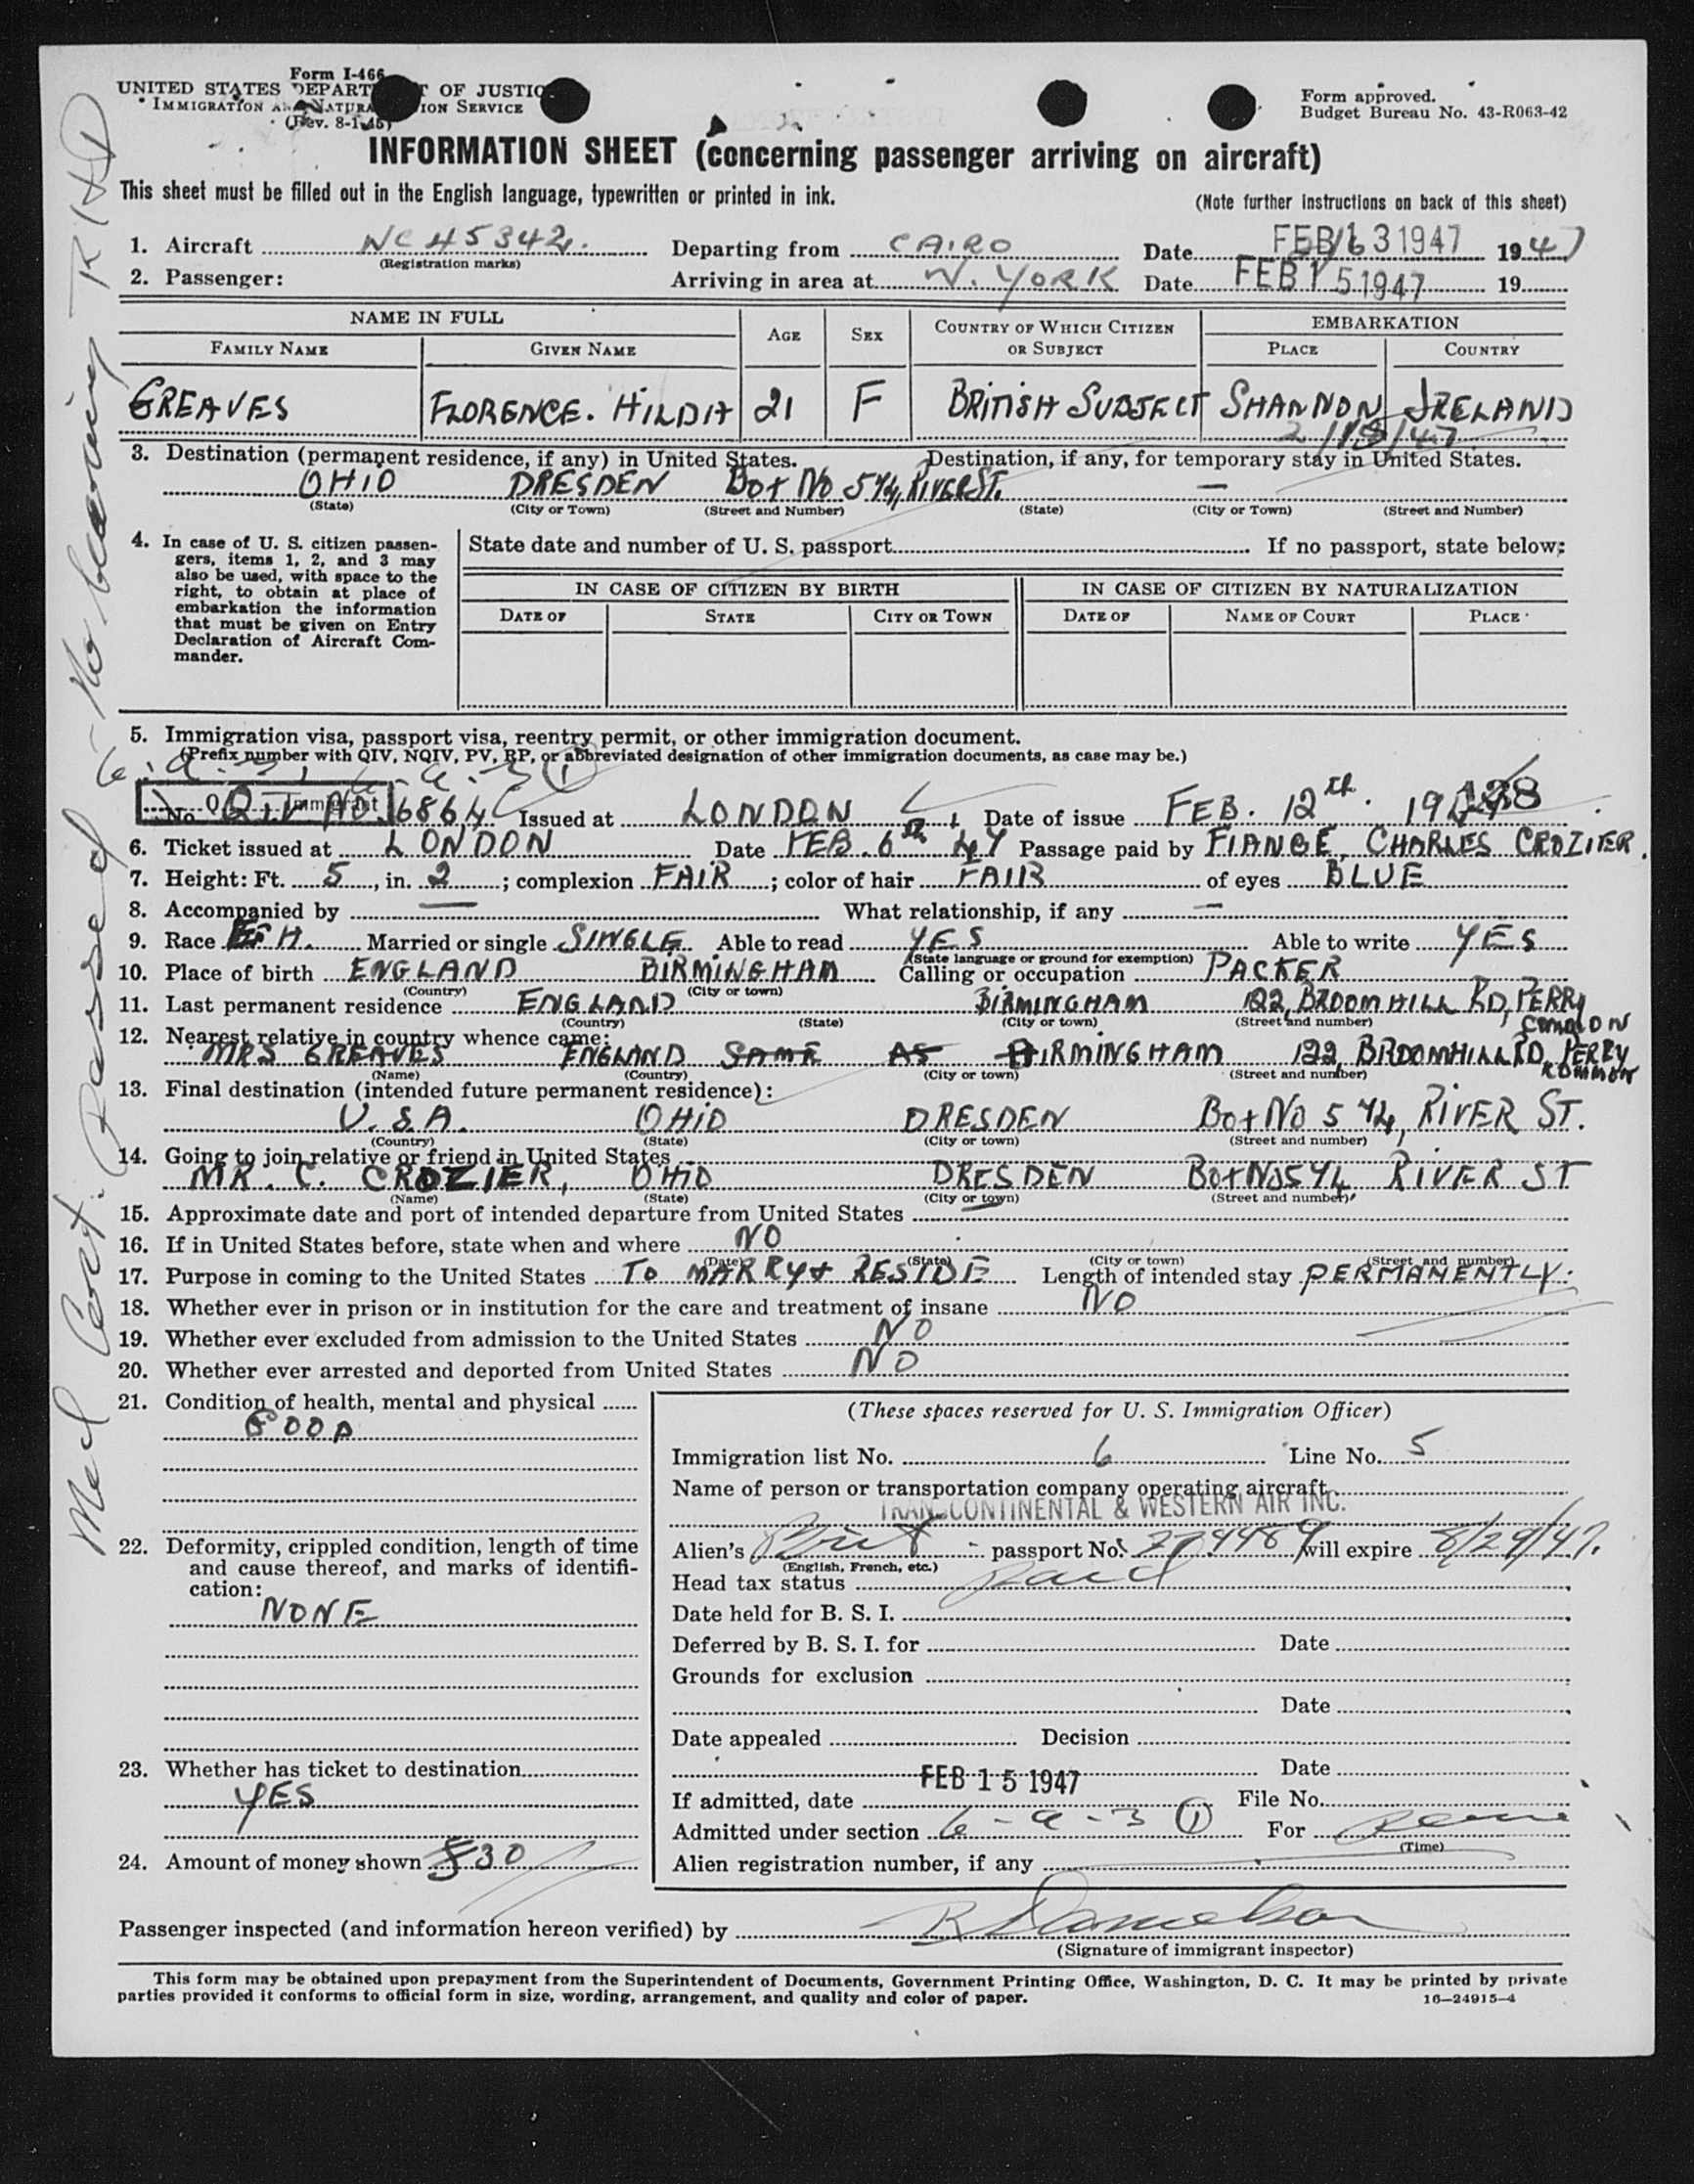 Form I-466
UNITED STATES DEPARTMENT OF JUSTICE
IMMIGRATION AND NATURALIZATION SERVICE
(Rev. 8-1-45)
Form approved.
Budget Bureau No. 43-R063-42
INFORMATION SHEET (concerning passenger arriving on aircraft)
This sheet must be filled out in the English language, typewritten or printed in ink.
(Note further instructions on back of this sheet)
1. Aircraft NC 45342. Departing from CAIRO Date FEB 13 1947 1947
(Registration marks)
2. Passenger: Arriving in area at N. YORK Date FEB 15 1947 19
NAME IN FULL AGE SEX COUNTRY OF WHICH CITIZEN OR SUBJECT EMBARKATION
FAMILY NAME GIVEN NAME PLACE COUNTRY
GREAVES FLORENCE. HILDA 21 F BRITISH SUBJECT SHANNON IRELAND
3. Destination (permanent residence, if any) in United States. Destination, if any, for temporary stay in United States.
OHIO DRESDEN BOX NO 574, RIVER ST. —
(State) (City or Town) (Street and Number) (State) (City or Town) (Street and Number)
4. In case of U. S. citizen passengers, items 1, 2, and 3 may also be used, with space to the right, to obtain at place of embarkation the information that must be given on Entry Declaration of Aircraft Commander.
State date and number of U. S. passport If no passport, state below:
IN CASE OF CITIZEN BY BIRTH IN CASE OF CITIZEN BY NATURALIZATION
DATE OF STATE CITY OR TOWN DATE OF NAME OF COURT PLACE
5. Immigration visa, passport visa, reentry permit, or other immigration document.
(Prefix number with QIV, NQIV, PV, RP, or abbreviated designation of other immigration documents, as case may be.)
No. Immigrant 6864 Issued at LONDON Date of issue FEB. 12th. 194
6. Ticket issued at LONDON Date FEB. 6th 47 Passage paid by FIANCE, CHARLES CROZIER.
7. Height: Ft. 5, in. 2; complexion FAIR; color of hair FAIR of eyes BLUE
8. Accompanied by — What relationship, if any —
9. Race Married or single SINGLE Able to read YES Able to write YES
(State language or ground for exemption)
10. Place of birth ENGLAND BIRMINGHAM Calling or occupation PACKER
(Country) (City or town)
11. Last permanent residence ENGLAND BIRMINGHAM 122, BROOMHILL RD, PERRY COMMON
(Country) (State) (City or town) (Street and number)
12. Nearest relative in country whence came:
MRS GREAVES ENGLAND SAME AS BIRMINGHAM 122, BROOMHILL RD, PERRY KOMMON
(Name) (Country) (City or town) (Street and number)
13. Final destination (intended future permanent residence):
U.S.A. OHIO DRESDEN BOX NO 574, RIVER ST.
(Country) (State) (City or town) (Street and number)
14. Going to join relative or friend in United States
MR. C. CROZIER, OHIO DRESDEN BOX NO 574 RIVER ST
(Name) (State) (City or town) (Street and number)
15. Approximate date and port of intended departure from United States
16. If in United States before, state when and where NO
(Date) (State) (City or town) (Street and number)
17. Purpose in coming to the United States TO MARRY & RESIDE Length of intended stay PERMANENTLY.
18. Whether ever in prison or in institution for the care and treatment of insane NO
19. Whether ever excluded from admission to the United States NO
20. Whether ever arrested and deported from United States NO
21. Condition of health, mental and physical
GOOD
22. Deformity, crippled condition, length of time and cause thereof, and marks of identification:
NONE
23. Whether has ticket to destination
YES
24. Amount of money shown £30
(These spaces reserved for U. S. Immigration Officer)
Immigration list No. 6 Line No. 5
Name of person or transportation company operating aircraft
TRANSCONTINENTAL & WESTERN AIR INC.
Alien's Brit passport No. 274489 will expire 8/29/47.
(English, French, etc.)
Head tax status Paid
Date held for B. S. I.
Deferred by B. S. I. for Date
Grounds for exclusion
Date
Date appealed Decision
Date
If admitted, date FEB 15 1947 File No.
Admitted under section 6-a-3 (1) For Perm
(Time)
Alien registration number, if any
Passenger inspected (and information hereon verified) by
(Signature of immigrant inspector)
This form may be obtained upon prepayment from the Superintendent of Documents, Government Printing Office, Washington, D. C. It may be printed by private
parties provided it conforms to official form in size, wording, arrangement, and quality and color of paper.
16—24915-4
Med Cert. Passed - No bearing RHD